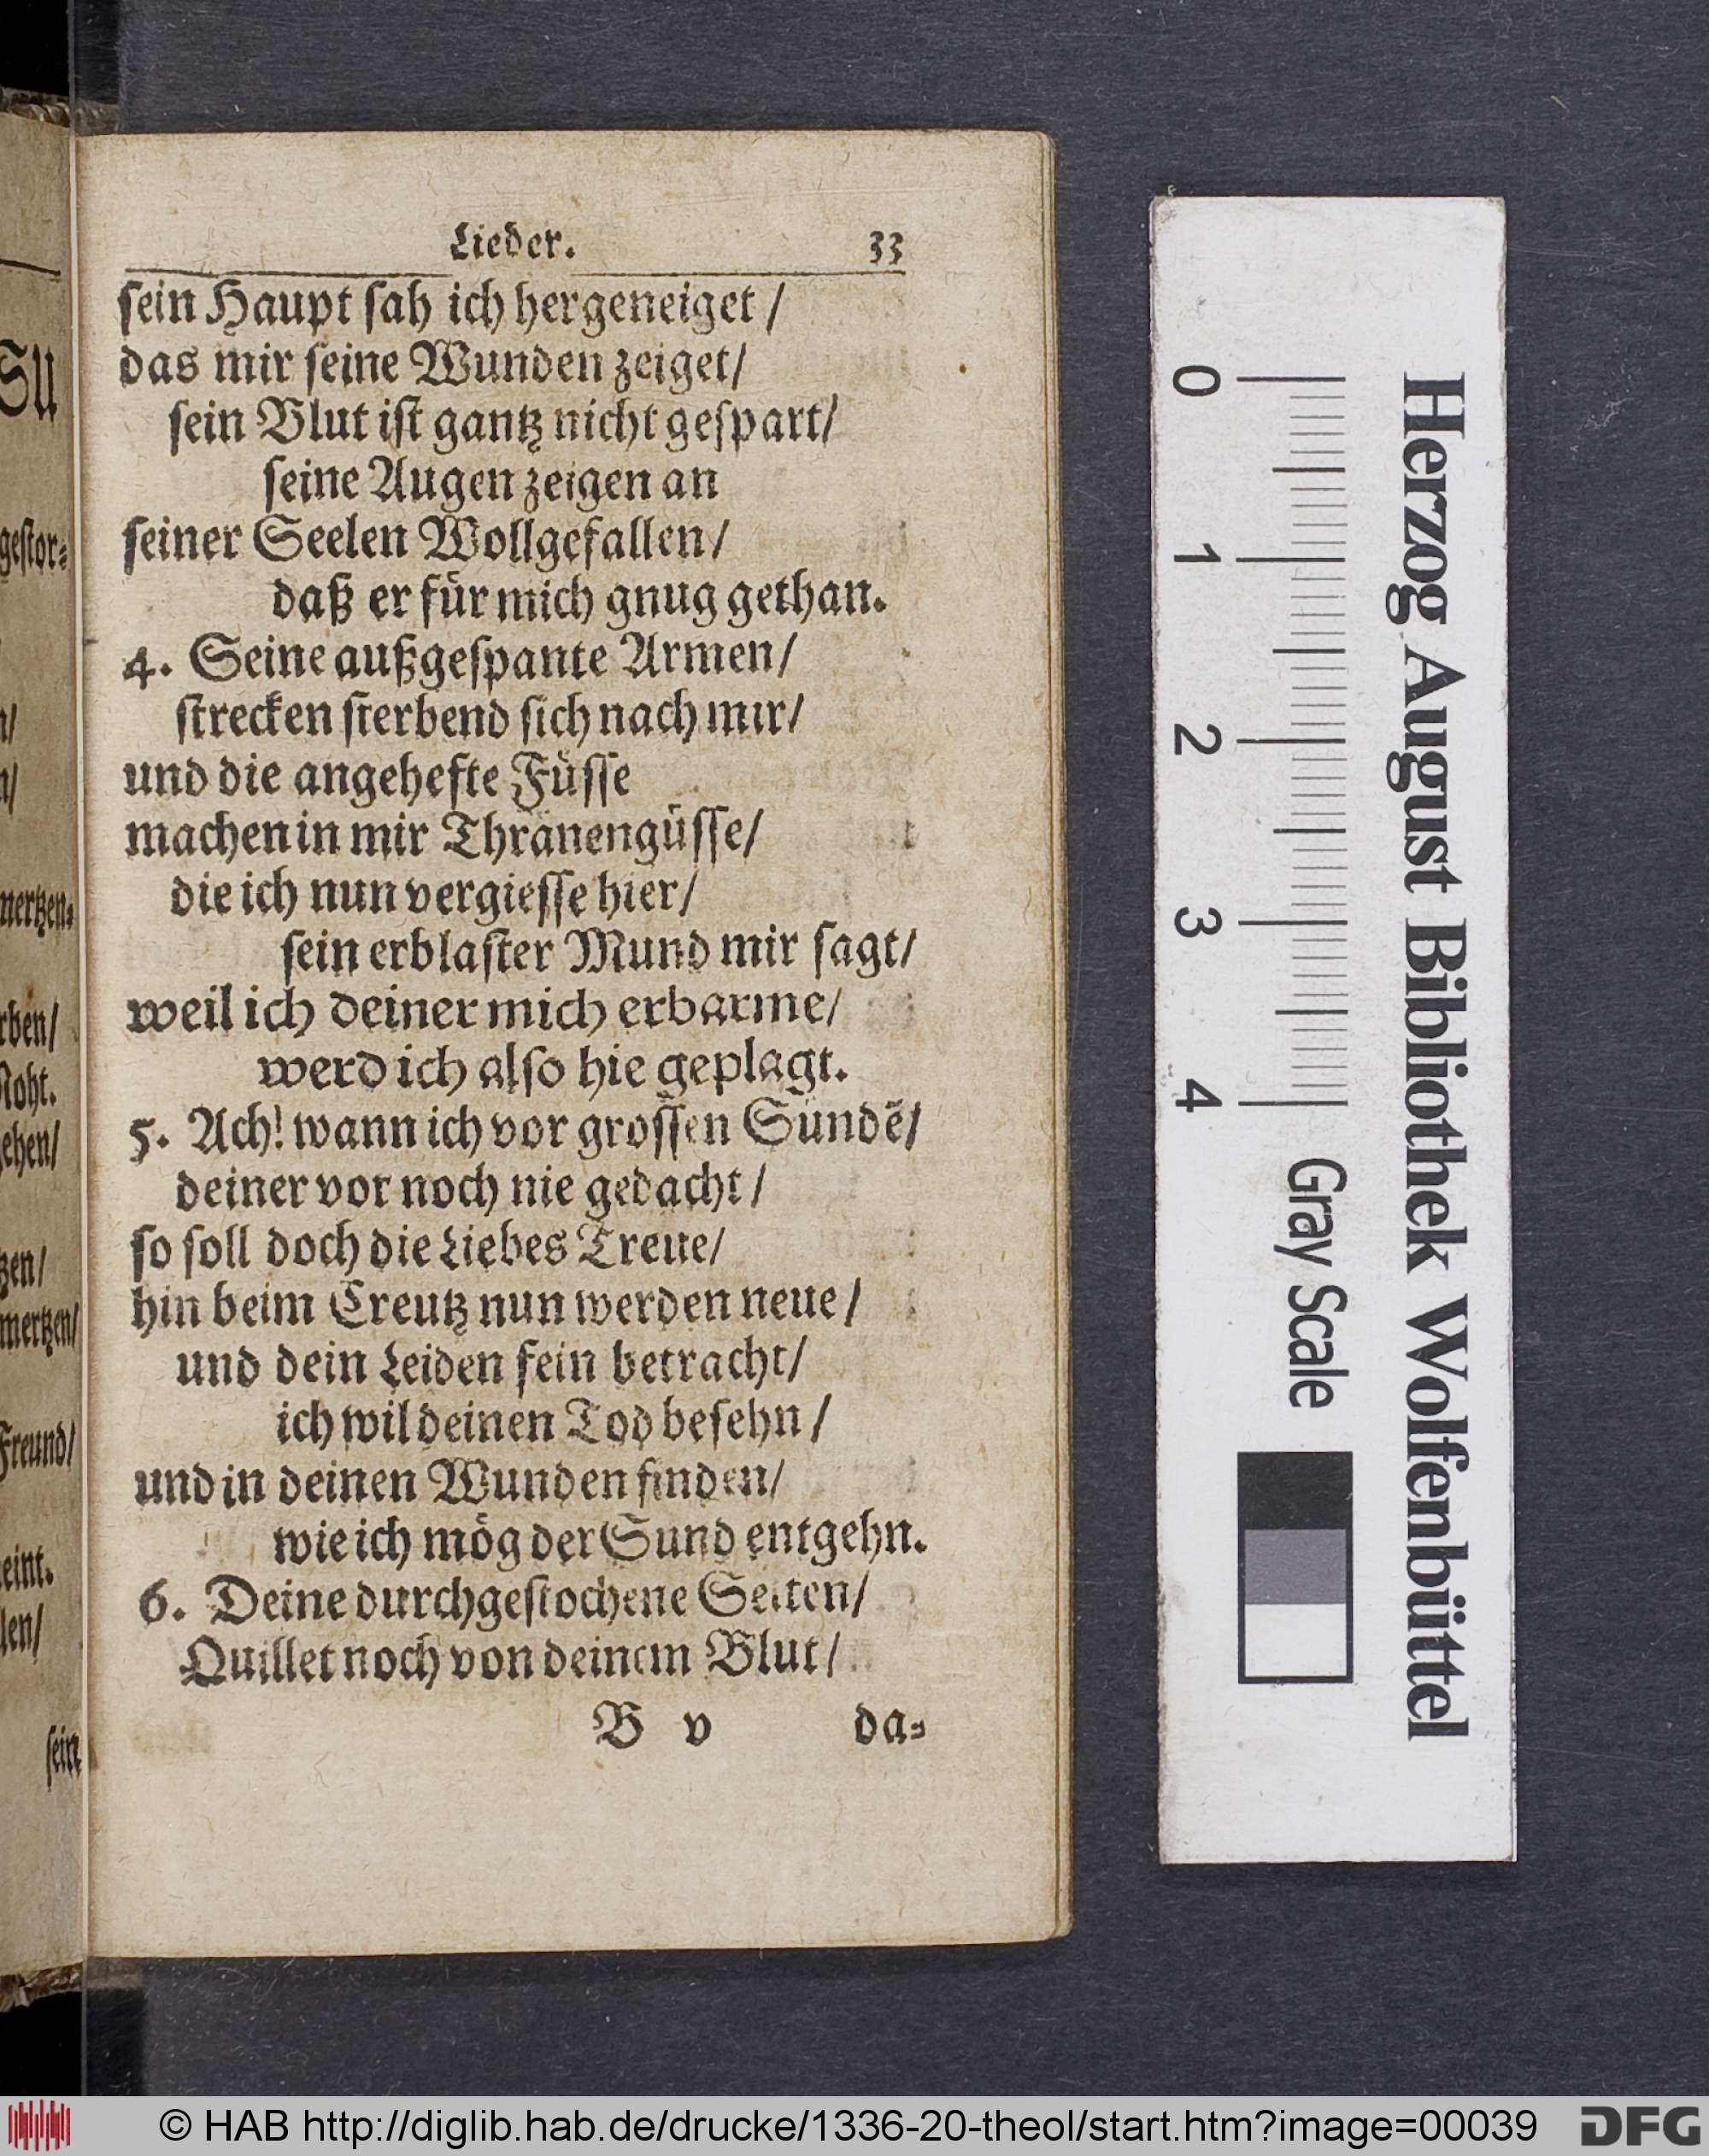 Lieder. 33
ſein Haupt ſah ich hergeneiget /
das mir ſeine Wunden zeiget/
ſein Blut iſt gantz nicht geſpart/
ſeine Augen zeigen an
ſeiner Seelen Wollgefallen/
daß er für mich gnug gethan.
4. Seine außgeſpante Armen/
ſtrecken ſterbend ſich nach mir/
und die angehefte Füſſe
machen in mir Thränengüſſe/
die ich nun vergieſſe hier/
ſein erblaſter Mund mir ſagt/
weil ich deiner mich erbarme/
werd ich alſo hie geplagt.
5. Ach! wann ich vor groſſen Sündẽ/
deiner vor noch nie gedacht /
ſo ſoll doch die Liebes Treue/
hin beim Creutz nun werden neue /
und dein Leiden fein betracht/
ich wil deinen Tod beſehn /
und in deinen Wunden finden/
wie ich mög der Sund entgehn.
6. Deine durchgeſtochene Seiten/
Quillet noch von deinem Blut /
B v da-
SU
geſtor-
n/
n/
mertzen-
rben/
Noht.
ehen/
tzen/
mertzen/
Freund/
eint.
len/
ſein
0 1 2 3 4 Gray Scale
Herzog August Bibliothek Wolfenbüttel
© HAB http://diglib.hab.de/drucke/1336-20-theol/start.htm?image=00039 DFG